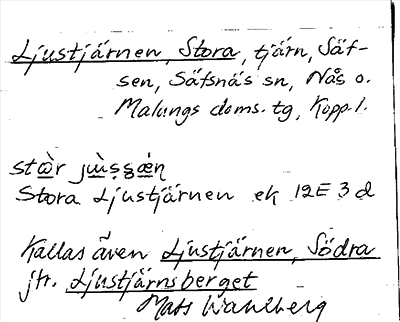 Ljustjärnen, Stora, tjärn, Säf-
sen, Säfsnäs sn, Nås o.
Malungs doms. tg, Kopp. l.
Stora Ljustjärnen ek 12E 3d
Kallas även Ljustjärnen, Södra
jfr. Ljustjärnsberget
Mats Wahlberg